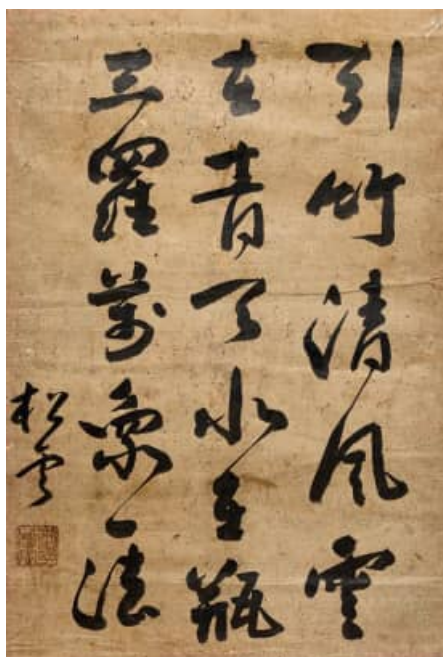 引竹清風雲
在青天水在瓶
三羅萬象一法
松雲